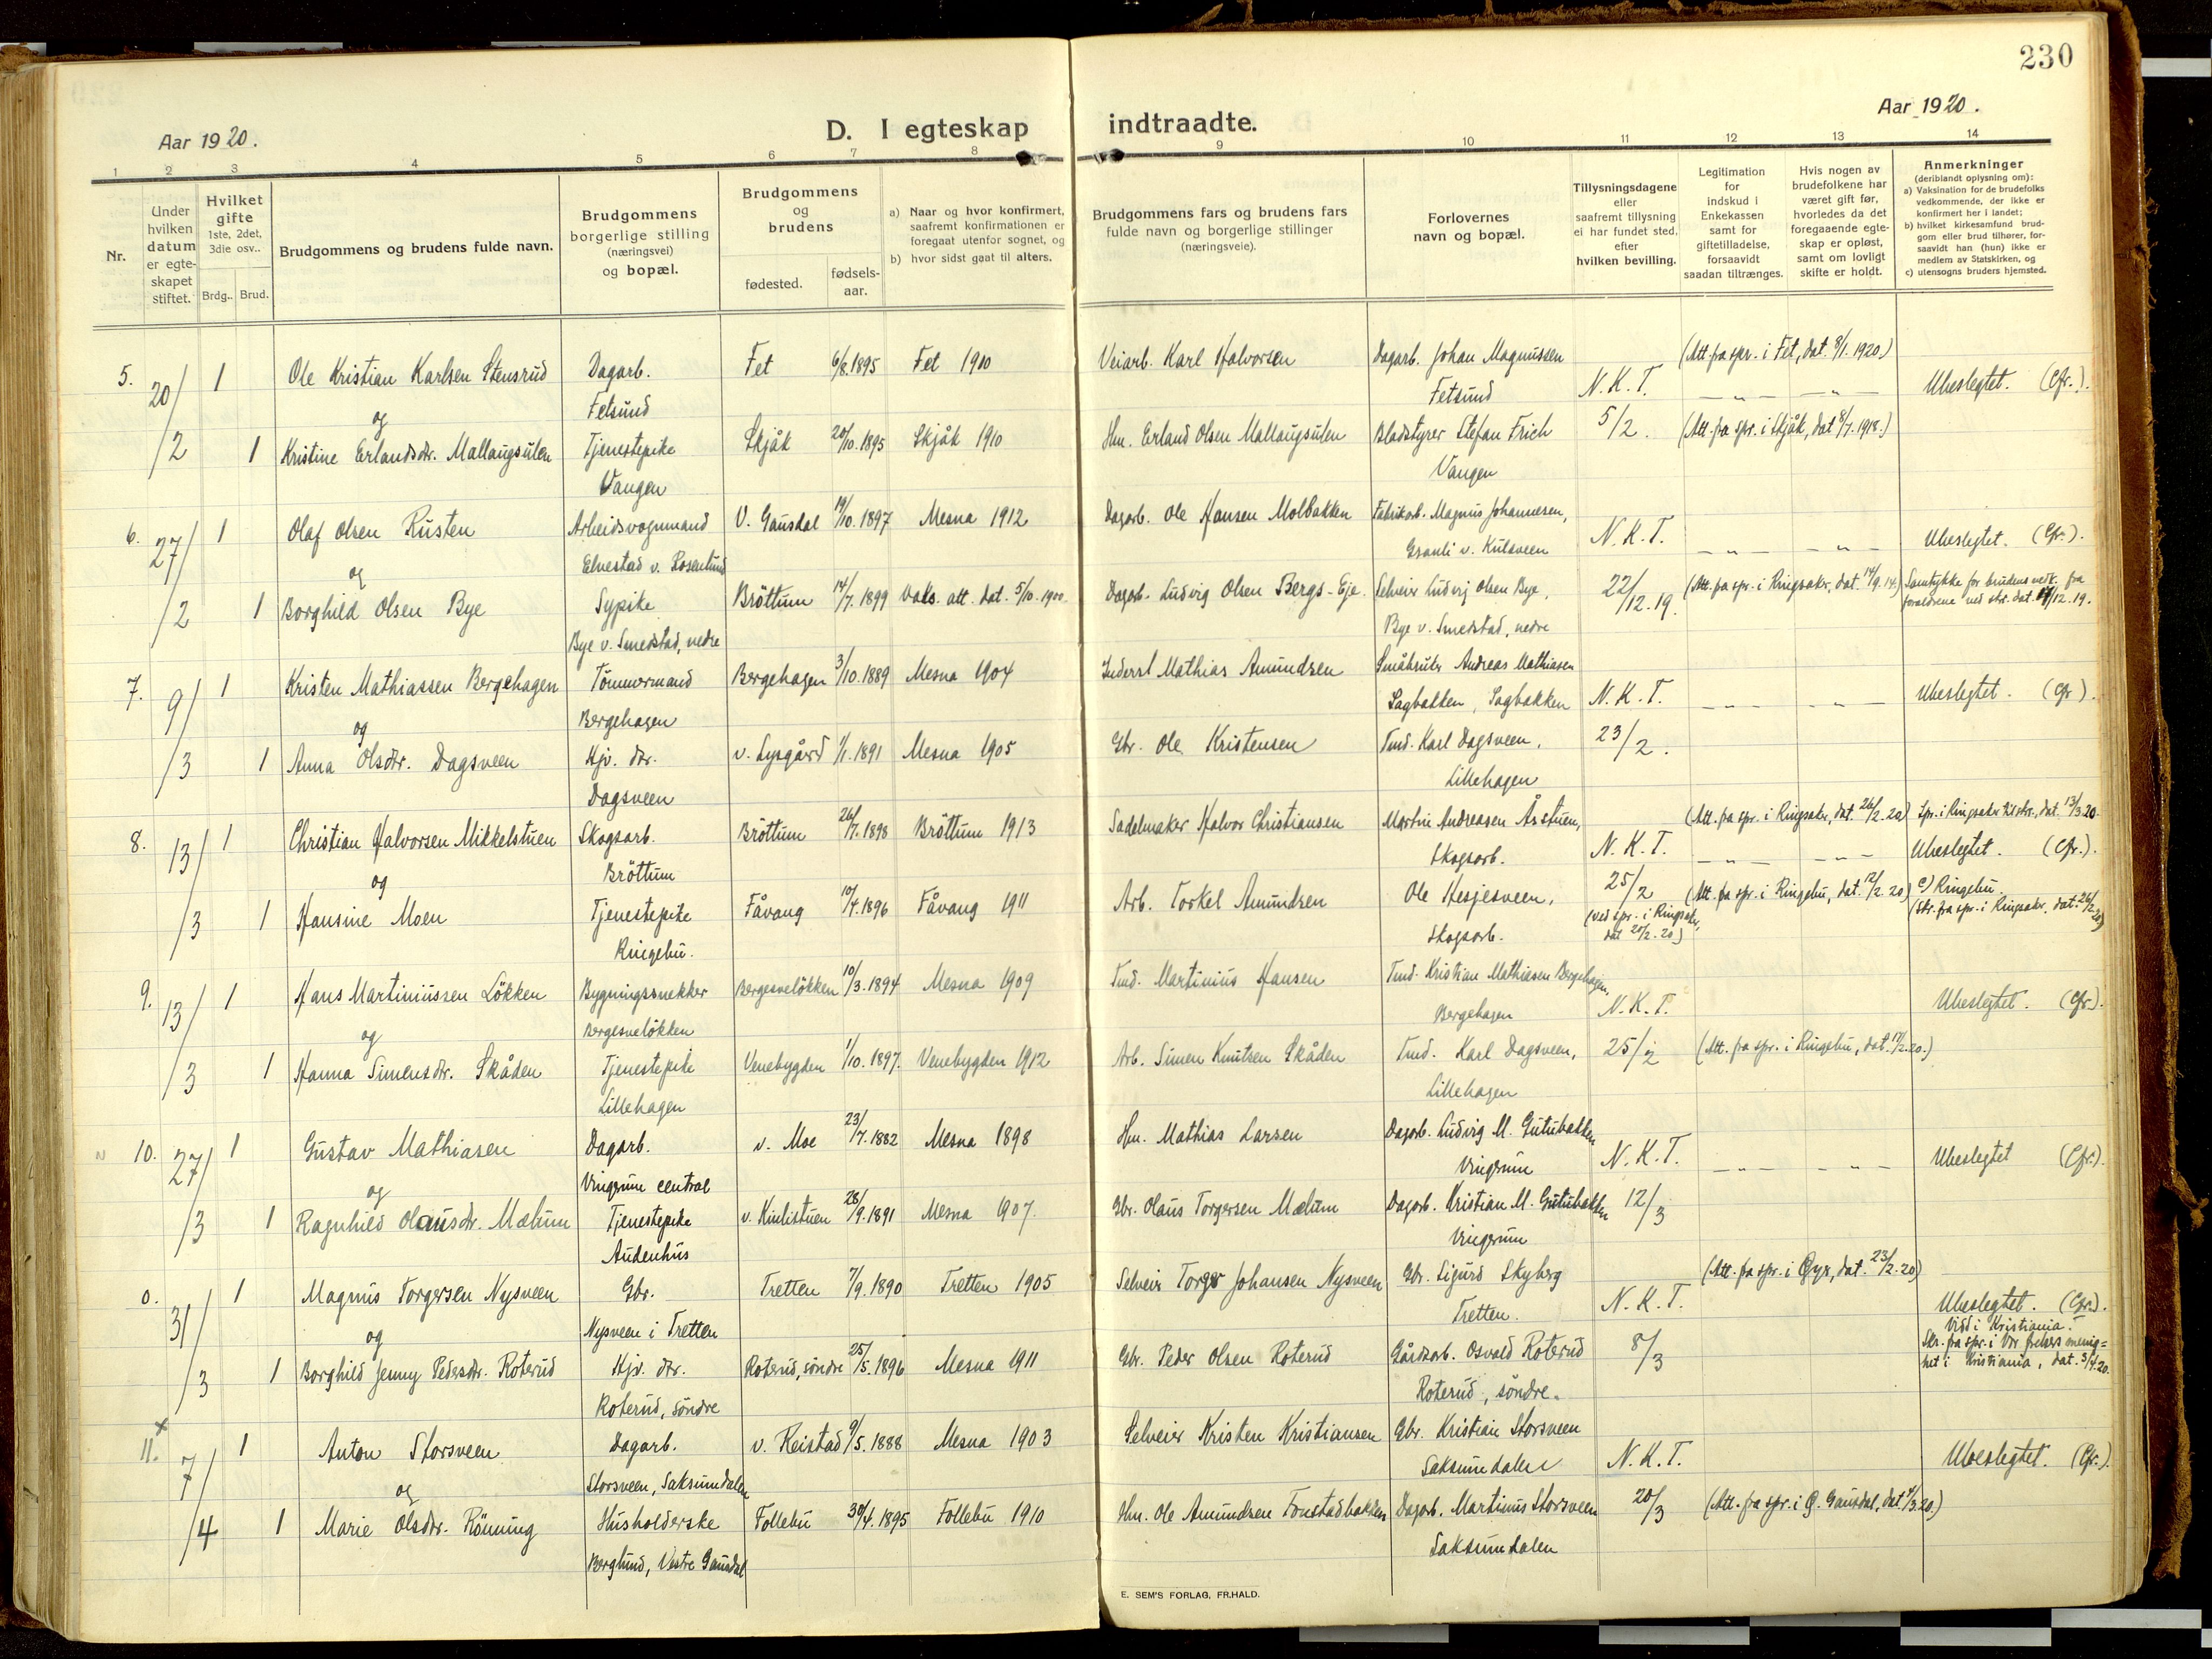 230
Aar 1920.
D. I egteskap
indtraadte.
Aar 1920.
1 2 3 4 5 6 7 8 9 10 11 12 13 14
Nr.
Under hvilken datum er egteskapet stiftet.
Hvilket gifte 1ste, 2det, 3die osv..
Brdg.. Brud.
Brudgommens og brudens fulde navn.
Brudgommens borgerlige stilling (næringsvei) og bopæl.
Brudgommens og brudens
fødested.
fødsels-aar.
a) Naar og hvor konfirmert, saafremt konfirmationen er foregaat utenfor sognet, og
b) hvor sidst gaat til alters.
Brudgommens fars og brudens fars fulde navn og borgerlige stillinger (næringsveie).
Forlovernes navn og bopæl.
Tillysningsdagene eller saafremt tillysning ei har fundet sted, efter hvilken bevilling.
Legitimation for indskud i Enkekassen samt for giftetilladelse, forsaavidt saadan tiltrænges.
Hvis nogen av brudefolkene har været gift før, hvorledes da det foregaaende egteskap er opløst, samt om lovligt skifte er holdt.
Anmerkninger (deriblandt oplysning om):
a) Vaksination for de brudefolks vedkommende, der ikke er konfirmert her i landet;
b) hvilket kirkesamfund brudgom eller brud tilhører, forsaavidt han (hun) ikke er medlem av Statskirken, og
c) utensogns bruders hjemsted.
5. 20/2 1 Ole Kristian Karlsen Stensrud Dagarb. Fetsund Fet 6/8.1895 Fet 1910 Veiarb. Karl Halvorsen Dagarb. Johan Magnussen Fetsund N.K.T. (Att. fra spr. i Fet, dat. 8/1.1920) Ubeslegtet. (Cfr.).
og
1 Kristine Erlandsdr. Mallaugsulen Tjenestepike Vangen Skjåk 20/10.1895 Skjåk 1910 Hm. Erland Olsen Mallaugsulen Bladstyrer Stefan Frich Vangen 5/2. (Att. fra spr. i Skjåk, dat 8/7.1918.)
6. 27/2 1 Olaf Olsen Rusten Arbeidsvognmand Elvestad v. Rosenlund V. Gausdal 19/10.1897 Mesna 1912 Dagarb. Ole Hansen Molbakken Fabrikarb. Magnus Johannesen, Granli v. Kulsveen N.K.T. Ubeslegtet. (Cfr.).
og
1 Borghild Olsen Bye Sypike Bye v. Smedstad, nedre Brøttum 14/7.1899 Vaks. att. dat. 5/10.1900. Dagarb. Ludvig Olsen Bergs-Eje. Selveier Ludvig Olsen Bye, Bye v. Smedstad, nedre 22/12.19. (Att. fra spr. i Ringsaker, dat. 14/9.14.) Samtykke for brudens vedk. fra forældrene ved skr. dat. /12.19.
7. 9/3 1 Kristen Mathiassen Bergehagen Tømmermand Bergehagen Bergehagen 3/10.1889 Mesna 1904 Inderst Mathias Amundsen Småbruker Andreas Mathiasen Sagbakken, Sagbakken N.K.T. Ubeslegtet. (Cfr).
og
1 Anna Olsdtr. Dagsveen Hjv. dtr. Dagsveen v. Lysgård 1/1.1891 Mesna 1905 Gbr. Ole Kristensen Tmd. Karl Dagsveen, Lillehagen 23/2.
8. 13/3 1 Christian Halvorsen Mikkelstuen Skogsarb. Brøttum Brøttum 26/7.1898 Brøttum 1913 Sadelmaker Halvor Christiansen Martin Andreasen Åstuen, Skogsarb. N.K.T. (Att. fra spr. i Ringsaker, dat. 26/2.20) Spr. i Ringsaker tilskr., dat. 13/3.20. Ubeslegtet. (Cfr.).
og
1 Hansine Moen Tjenestepike Ringebu. Fåvang 10/4.1896 Fåvang 1911 Arb. Torkel Amundsen Ole Hesjesveen, Skogsarb. 25/2 (ved spr. i Ringsaker, dat 20/2.20.) (Att. fra spr. i Ringebu, dat. 12/2.20) c) Ringebu. (Skr. fra spr. i Ringsaker, dat. 26/2.20)
9. 13/3 1 Hans Martiniussen Løkken Bygningssnekker Bergesveløkken Bergesveløkken 10/3.1894 Mesna 1909 Tmd. Martinius Hansen Tmd. Kristian Mathiesen Bergehagen, Bergehagen N.K.T. Ubeslegtet. (Cfr.).
og
1 Hanna Simensdr. Skåden Tjenestepike Lillehagen Venebygden 1/10.1897. Venebygden 1912 Arb. Simen Knutsen Skåden Tmd. Karl Dagsveen, Lillehagen 25/2 (Att. fra spr. i Ringebu, dat. 17/2.20.)
10. 27/3 1 Gustav Mathiasen Dagarb. Vingrum central v. Moe 23/7.1882 Mesna 1898 Hm. Mathias Larsen Dagarb. Ludvig M. Gutubakken Vingrum N.K.T. Ubeslegtet (Cfr.).
og
1 Ragnhild Olausdr. Mælum Tjenestepike Audenhus v. Kinlistuen 28/9.1891 Mesna 1907. Gbr. Olaus Torgersen Mælum Dagarb. Kristian M. Gutubakken Vingrum 12/3
0. 31/3 1 Magnus Torgersen Nysveen Gbr. Nysveen i Tretten Tretten 7/9.1890 Tretten 1905 Selveier Torger Johansen Nysveen Gbr. Sigurd Skyberg Tretten. N.K.T. (Att. fra spr. i Øyer, dat. 23/2.20) Ubeslegtet. (Cfr.). Viet i Kristiania.
og
1 Borghild Jenny Pedersdtr. Roterud Hjv. dtr. Roterud, søndre Roterud, søndre 25/5.1896 Mesna 1911 Gbr. Peder Olsen Roterud Gårdsarb. Osvald Roterud Roterud, søndre. 8/3 Skr. fra spr. i Vor frelsers menighet i Kristiania, dat. 3/4.20.
11. 7/4 1 Anton Storsveen Dagarb. Storsveen, Saksumdalen v. Reistad 9/5.1888 Mesna 1903 Selveier Kristen Kristiansen Gbr. Kristian Storsveen Saksumdalen N.K.T. Ubeslegtet. (Cfr.).
og
1 Marie Olsdtr. Rønning Husholderske Berglund, Vestre Gausdal Follebu 30/4.1895 Follebu 1910 Hm. Ole Amundsen Fonstadbakken Dagarb. Martinus Storsveen Saksumdalen 20/3 (Att. fra spr. i Ø. Gausdal, dat /3.20.)
E. SEM'S FORLAG, FR.HALD.